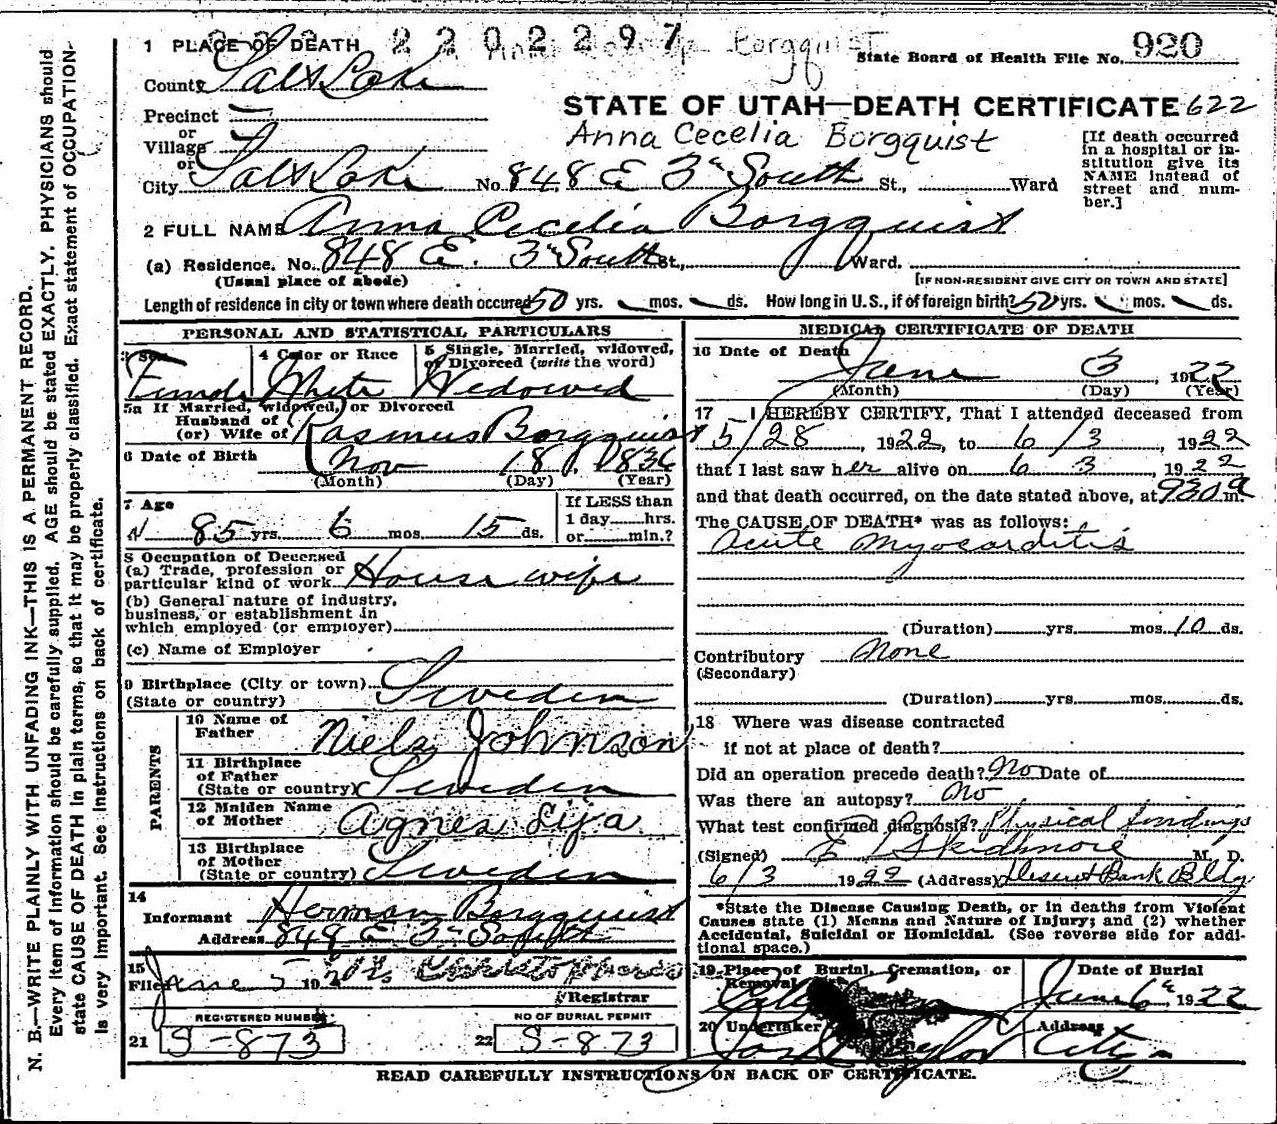 2202297
Borgquist
1 PLACE OF DEATH
State Board of Health File No. 920
County Salt Lake
STATE OF UTAH—DEATH CERTIFICATE 622
Precinct
or
Village
or
Anna Cecelia Borgquist
[If death occurred in a hospital or institution give its NAME instead of street and number.]
City Salt Lake No. 848 E 3rd South St., Ward
2 FULL NAME Anna Cecelia Borgquist
(a) Residence. No. 848 E. 3rd South St., Ward.
(Usual place of abode)
[IF NON-RESIDENT GIVE CITY OR TOWN AND STATE]
Length of residence in city or town where death occured 50 yrs. mos. ds. How long in U.S., if of foreign birth? 50 yrs. mos. ds.
PERSONAL AND STATISTICAL PARTICULARS
3 Sex
4 Color or Race
5 Single, Married, widowed, or Divorced (write the word)
Female White Widowed
5a If Married, widowed, or Divorced
Husband of
(or) Wife of Rasmus Borgquist
6 Date of Birth Nov 18 1836
(Month) (Day) (Year)
7 Age
85 yrs. 6 mos. 15 ds.
If LESS than
1 day hrs.
or min.?
8 Occupation of Deceased
(a) Trade, profession or
particular kind of work House wife
(b) General nature of industry,
business, or establishment in
which employed (or employer)
(c) Name of Employer
9 Birthplace (City or town)
(State or country) Sweden
PARENTS
10 Name of
Father Niels Johnson
11 Birthplace
of Father
(State or country) Sweden
12 Maiden Name
of Mother Agnes Lija
13 Birthplace
of Mother
(State or country) Sweden
14
Informant Herman Borgquist
Address 849 E 3rd South
15
Filed June 5 192
Registrar
REGISTERED NUMBER
21 S-873
NO OF BURIAL PERMIT
22 S-873
MEDICAL CERTIFICATE OF DEATH
16 Date of Death
June 3, 1922
(Month) (Day) (Year)
17 I HEREBY CERTIFY, That I attended deceased from
5/28, 1922, to 6/3, 1922
that I last saw her alive on 6 3, 1922
and that death occurred, on the date stated above, at 930 a m.
The CAUSE OF DEATH* was as follows:
Acute Myocarditis
(Duration) yrs. mos. 10 ds.
Contributory None
(Secondary)
(Duration) yrs. mos. ds.
18 Where was disease contracted
if not at place of death?
Did an operation precede death? No Date of
Was there an autopsy? No
What test confirmed diagnosis? Physical findings
(Signed) Skidmore M. D.
6/3 1922 (Address) Deseret Bank Bldg
*State the Disease Causing Death, or in deaths from Violent
Causes state (1) Means and Nature of Injury; and (2) whether
Accidental, Suicidal or Homicidal. (See reverse side for addi-
tional space.)
19 Place of Burial, Cremation, or
Removal
City
Date of Burial
June 6th, 1922
20 Undertaker
Taylor
Address
City
READ CAREFULLY INSTRUCTIONS ON BACK OF CERTIFICATE.
N. B.—WRITE PLAINLY WITH UNFADING INK—THIS IS A PERMANENT RECORD.
Every item of information should be carefully supplied. AGE should be stated EXACTLY. PHYSICIANS should
state CAUSE OF DEATH in plain terms, so that it may be properly classified. Exact statement of OCCUPATION-
is very important. See instructions on back of certificate.